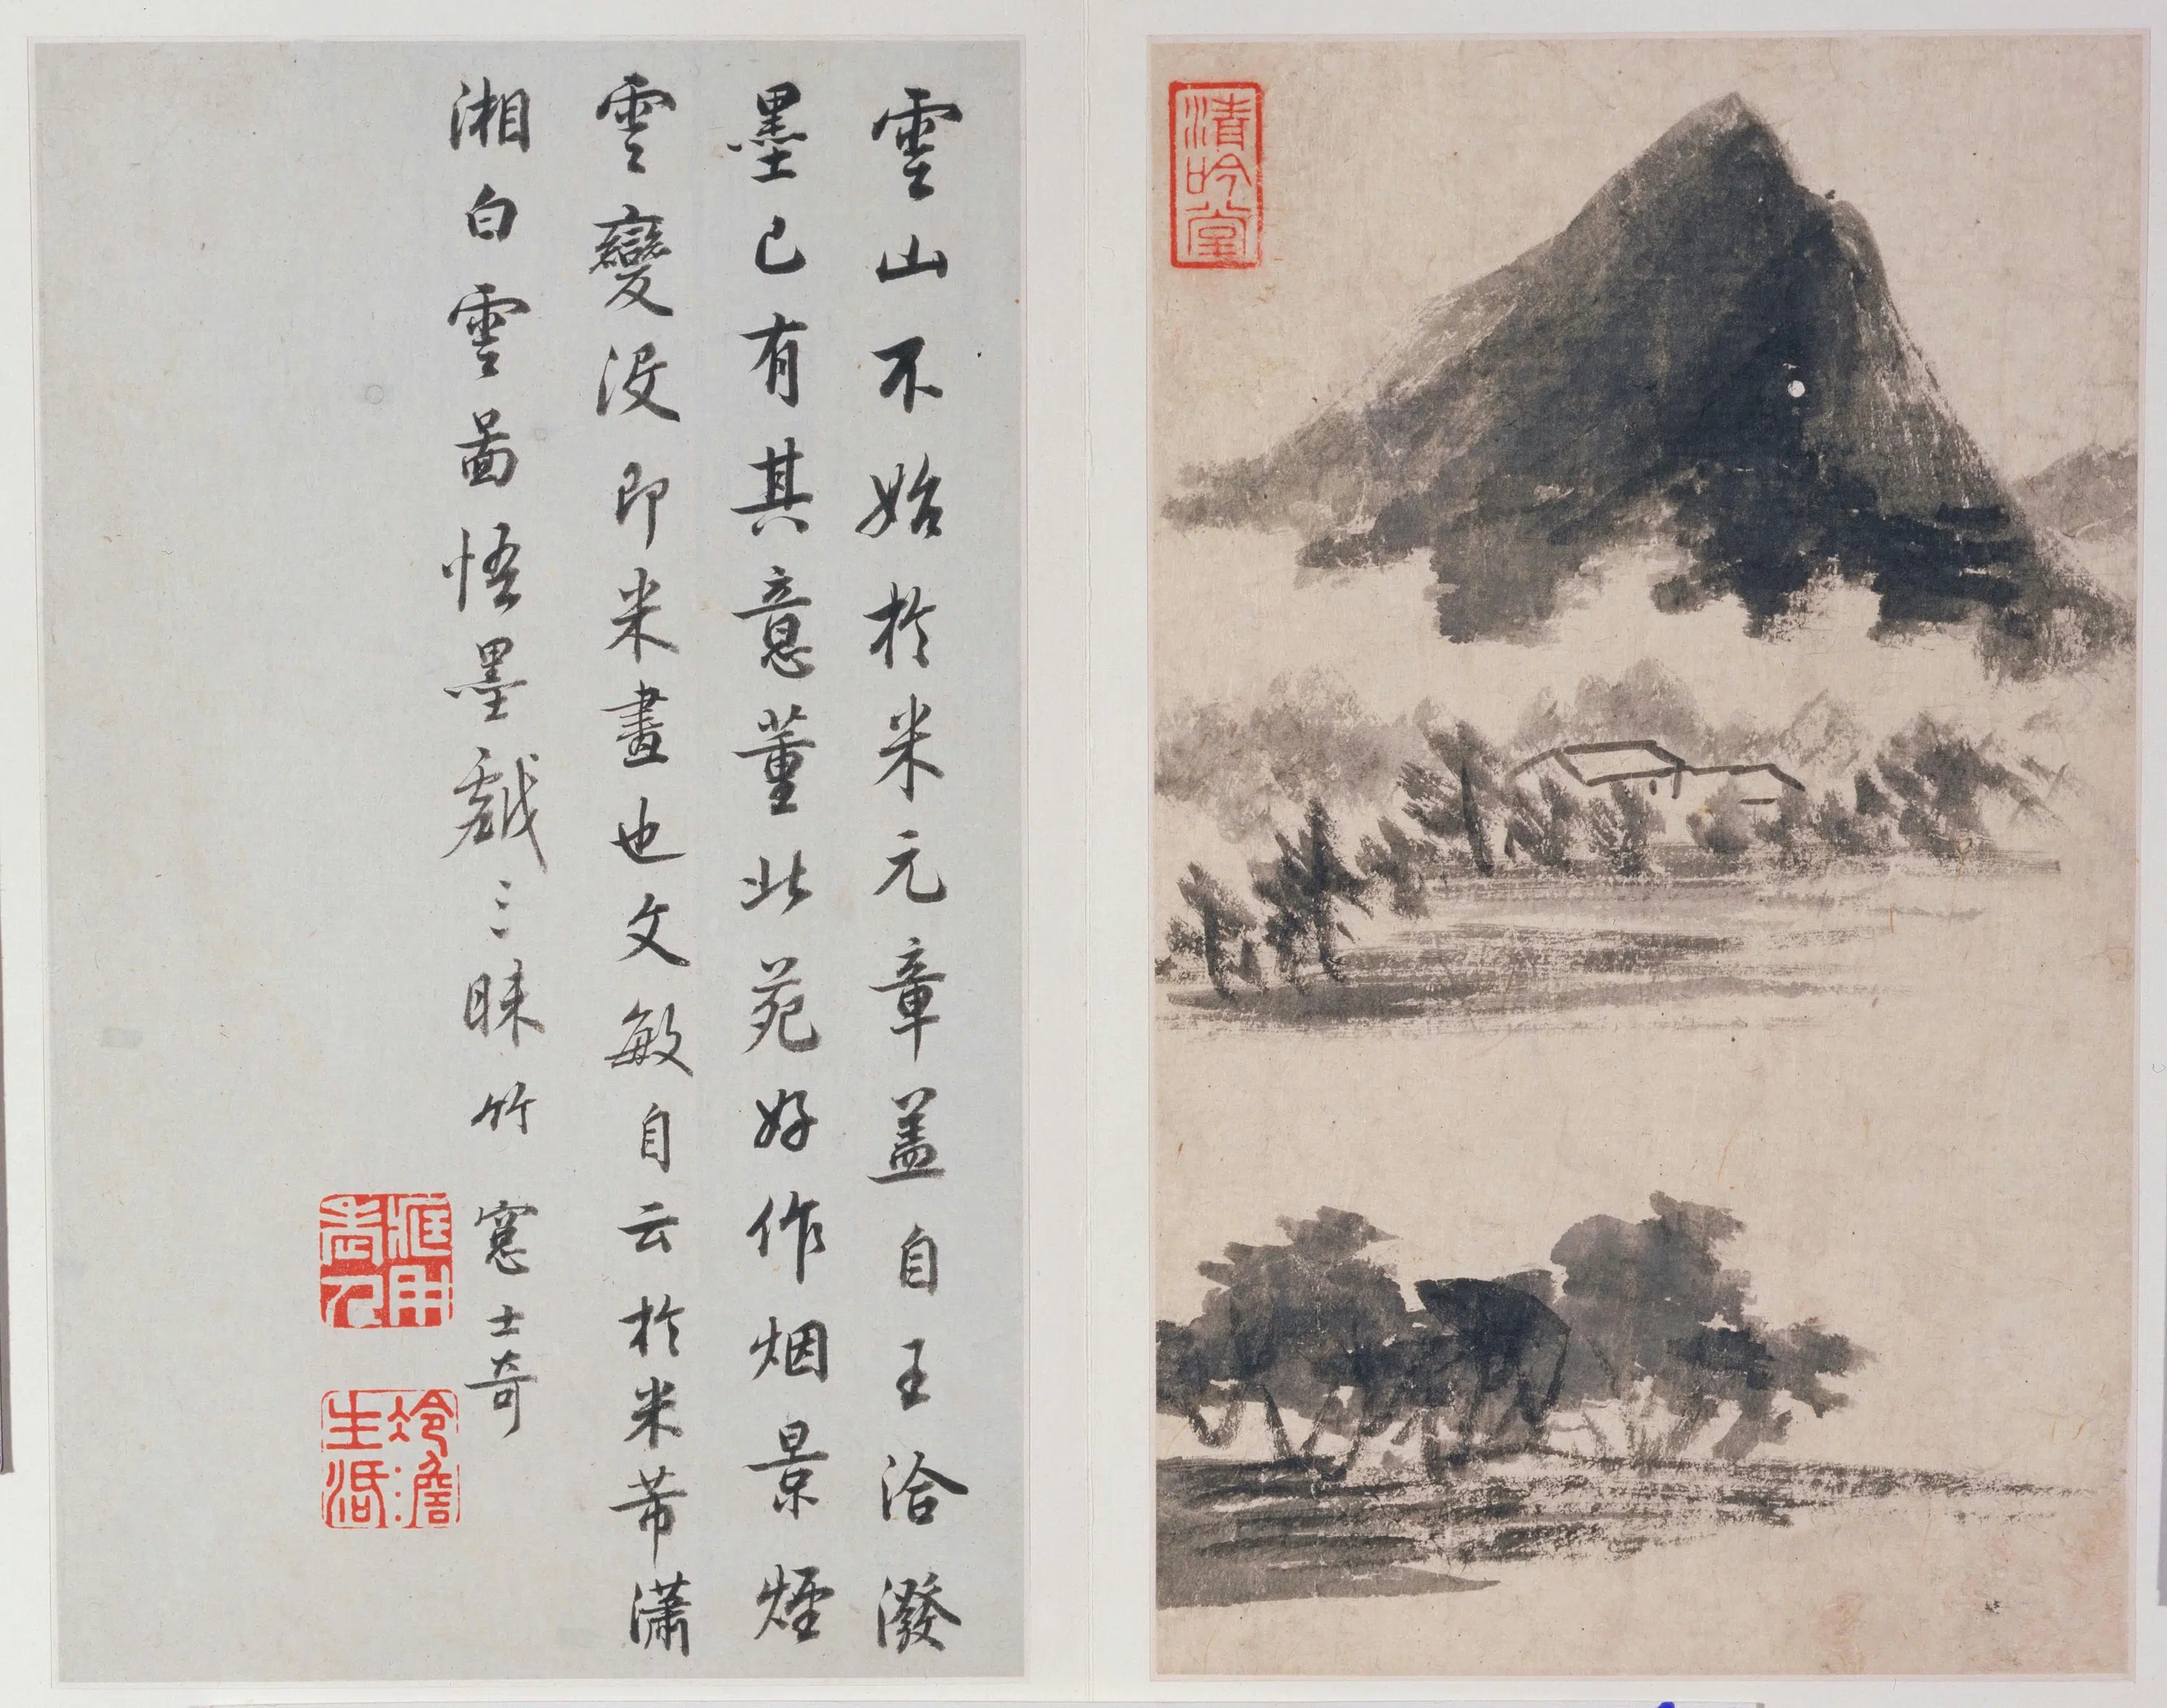 雲山不始於米元章盖自王洽潑
墨已有其意董北苑好作烟景煙
雲變没即米畫也文敏自云於米芾瀟
湘白雲圖悟墨戲三昧竹窗士奇
冷澹生活
清吟堂